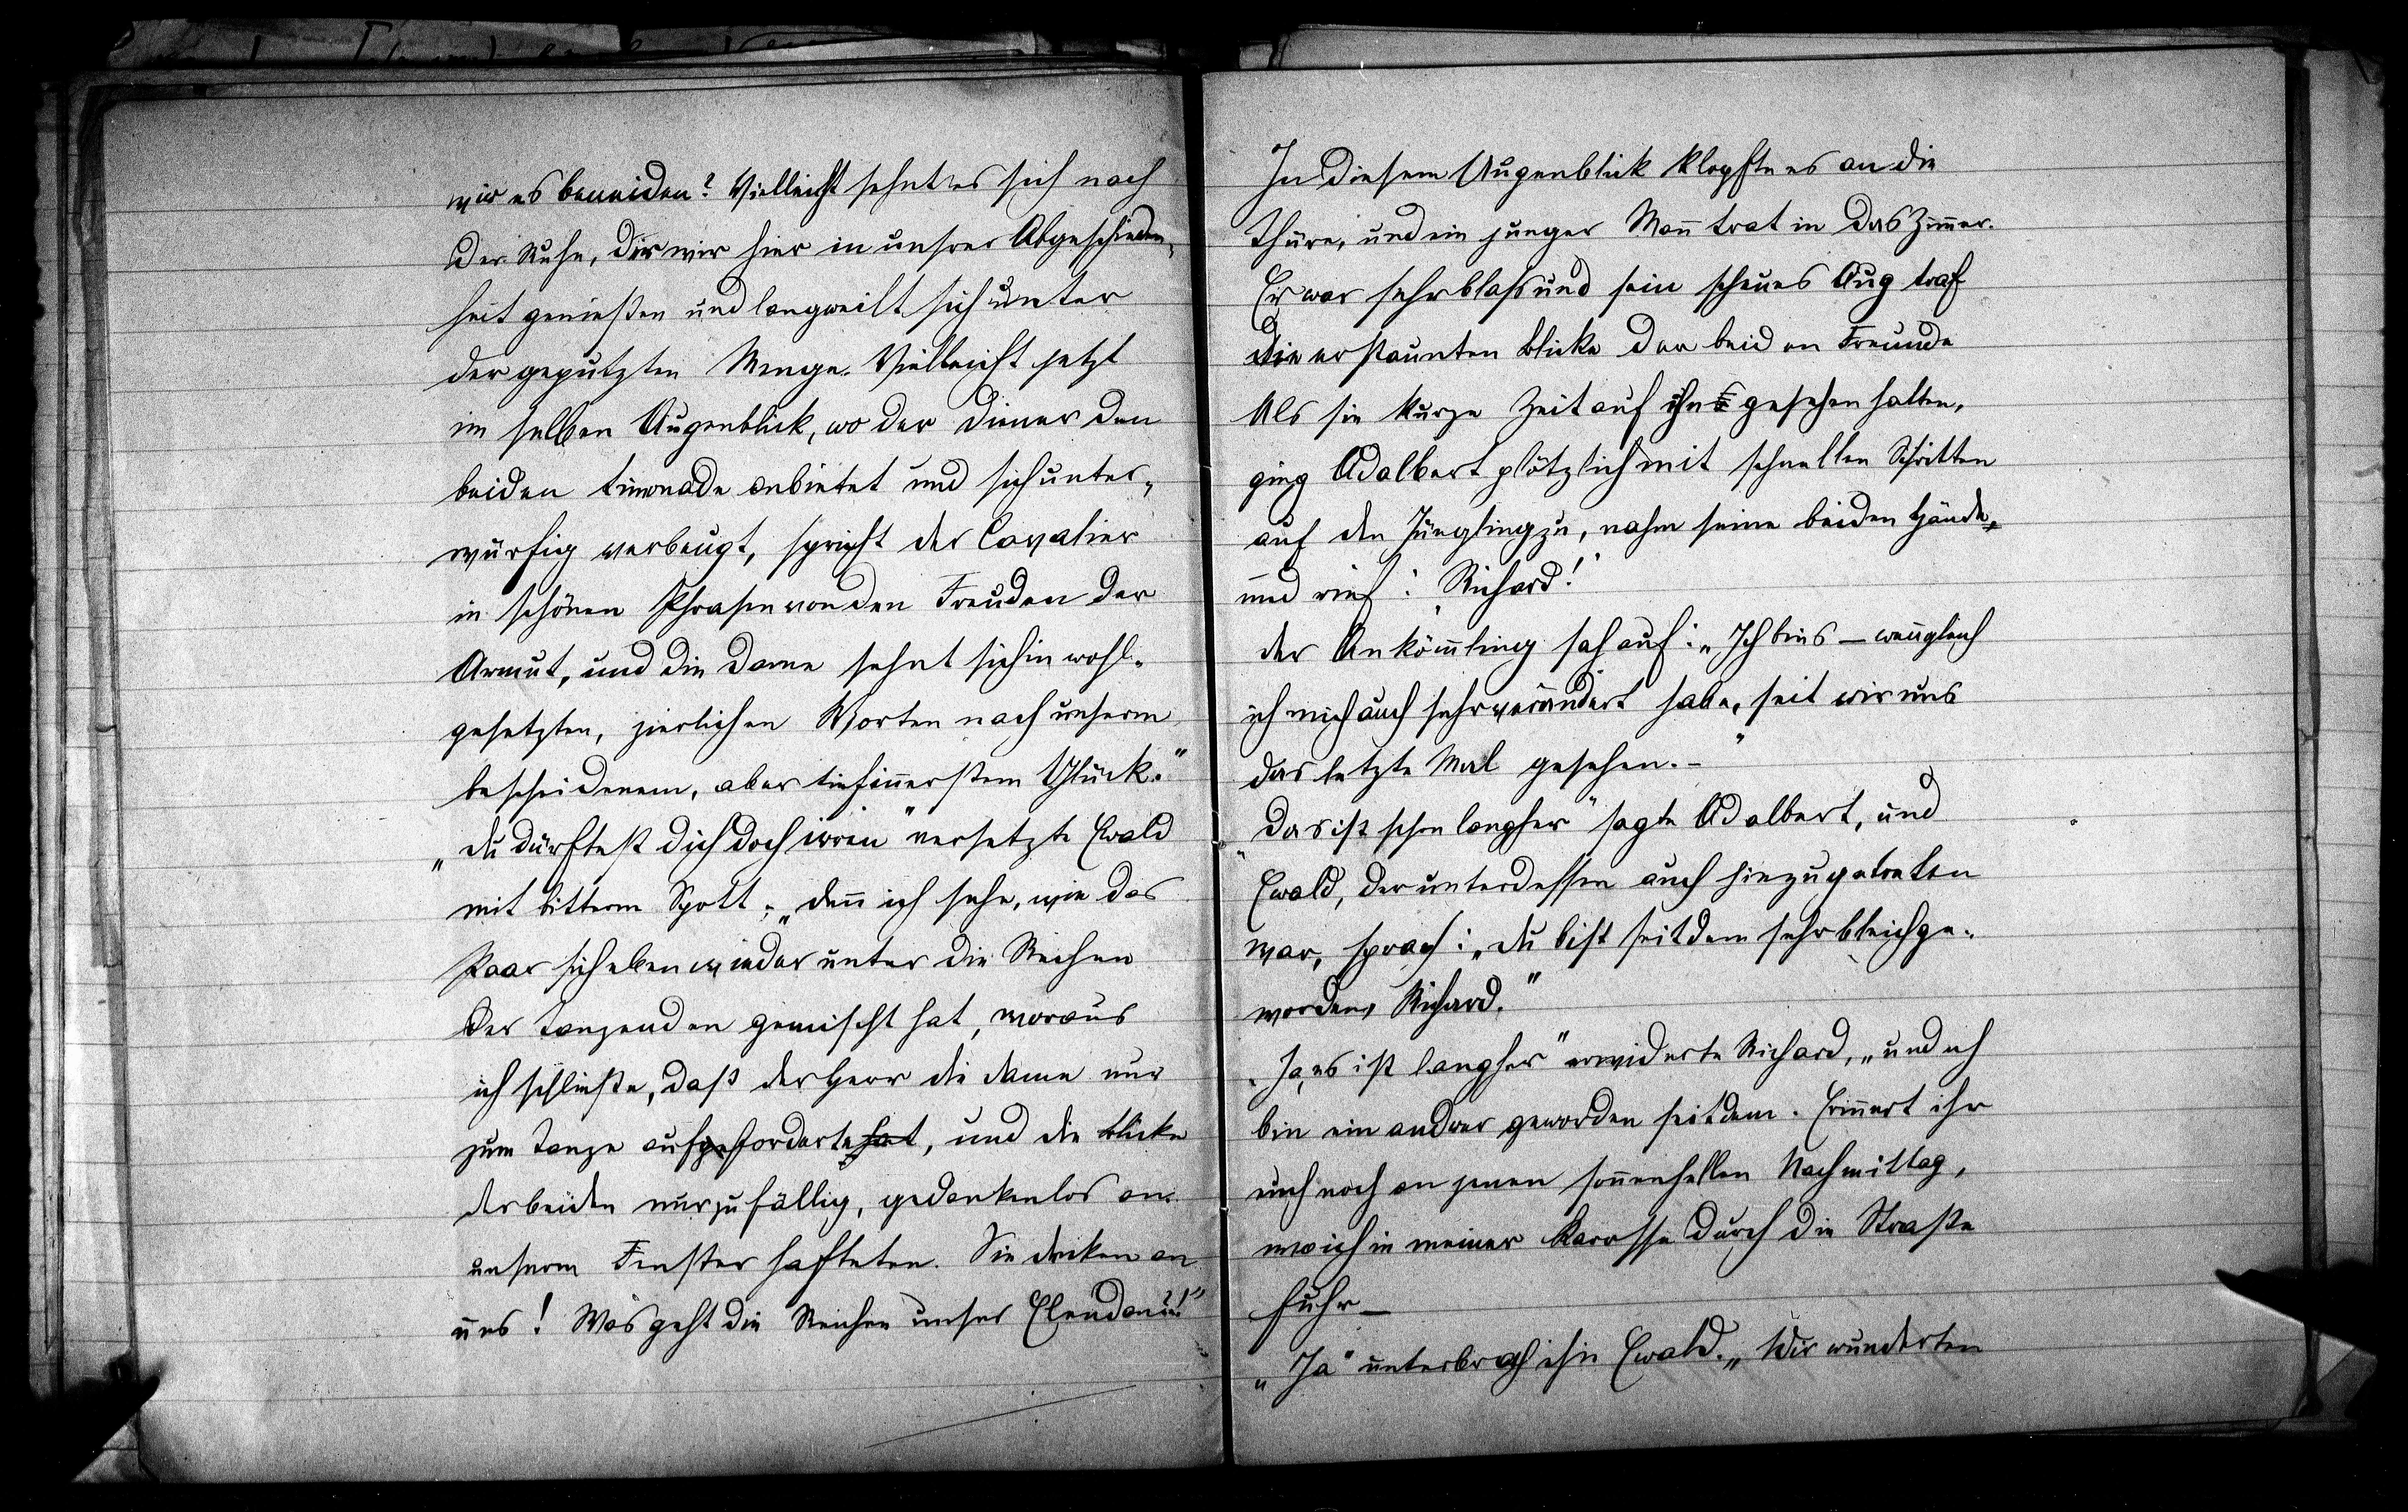 wir es beneiden? Vielleicht sehnt es sich nach
der Ruhe, die wir hier in unsrer Abgeschieden-
heit genießen und langweilt sich unter
der geputzten Menge. Vielleicht jetzt
im selben Augenblick, wo der Diener den
beiden Limonade anbietet und sich unter-
würfig verbeugt, spricht der Cavalier
in schönen Phrasen von den Freuden der
Armut, und die Dame sehnt sich in wohl-
gesetzten, zierlichen Worten nach unserm
bescheidenem, aber tiefinnerstem Glück."
„Du dürftest dich doch irren" versetzte Ewald
mit bitterm Spott; „denn ich sehe, wie das
Paar sich eben wieder unter die Reihen
der Tanzenden gemischt hat, woraus
ich schließe, daß der Herr die Dame nur
zum Tanze aufgeforderte hat, und die Blicke
der beiden nur zufällig, gedankenlos an
unserm Fenster hafteten. Sie denken an
uns! Was geht die Reichen unser Elend an?!"
In diesem Augenblick klopfte es an die
Thüre, und ein junger Mann trat in das Zimmer.
Er war sehr blass und sein scheues Aug traf
die erstaunten Blicke der beiden Freunde
Als sie kurze Zeit auf ihn gesehen hatten,
ging Adalbert plötzlich mit schnellen Schritten
auf den Jüngling zu, nahm seine beiden Hände,
und rief: „Richard!"
der Ankömmling sah auf: „Ich bins – wenngleich
ich mich auch sehr verändert habe, seit wir uns
das letzte Mal gesehen. –"
„Das ist schon langher" sagte Adalbert, und
Ewald, der unterdessen auch hinzugetreten
war, sprach: „Du bist seitdem sehr bleich ge-
worden, Richard."
„Ja, es ist langher" erwiderte Richard, „und ich
bin ein andrer geworden seitdem. Erinnert ihr
euch noch an jenen sonnenhellen Nachmittag,
wo ich in meiner Karosse durch die Straße
fuhr –
„Ja" unterbrach ihn Ewald. „Wir wunderten